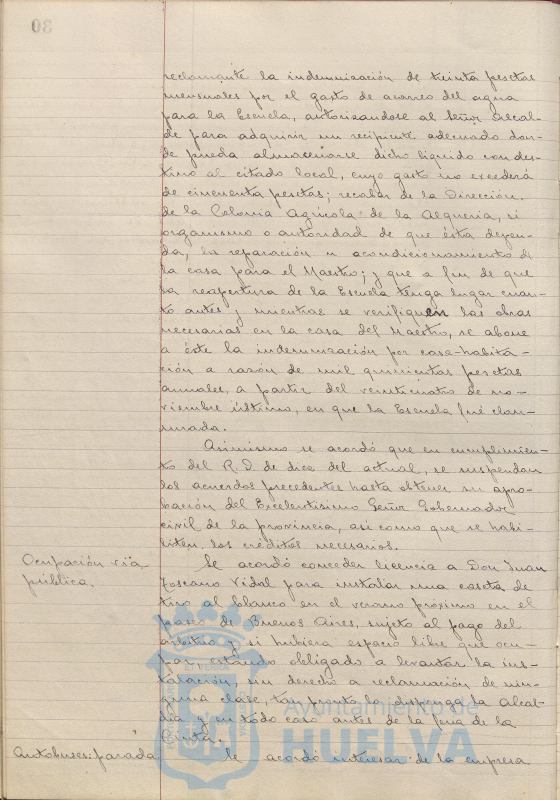 30
reclamante la indemnización de treinta pesetas
mensuales por el gasto de acarreo del agua
para la Escuela, autorizandose al Señor Alcal-
de para adquirir un recipiente adecuado don-
de pueda almacenarse dicho líquido con des-
tino al citado local, cuyo gasto no excederá
de cincuenta pesetas; recabar de la Dirección
de la Colonia Agrícola de la Alqueria, si
organismo o autoridad de que ésta depen-
da, la reparación u acondicionamiento de
la casa para el Maestro; y que a fin de que
la reapertura de la Escuela tenga lugar cuan-
to antes y mientras se verifiquen las obras
necesarias en la casa del Maestro, se abone
a éste la indemnización por casa-habita-
ción a razón de mil quinientas pesetas
anuales, a partir del veinticuatro de no-
viembre último, en que la Escuela fué clau-
surada.
Asimismo se acordó que en cumplimien-
to del R. D. de diez del actual, se suspendan
los acuerdos precedentes hasta obtener su apro-
bación del Excelentísimo Señor Gobernador
civil de la provincia, así como que se habi-
liten, los créditos necesarios.
Ocupación vía
pública.
Se acordó conceder licencia a Don Juan
Toscano Vidal para instalar una caseta de
tiro al blanco en el verano próximo en el
paseo de Buenos Aires, sujeto al pago del
arbitrio y si hubiera espacio libre que ocu-
par, estando obligado a levantar la ins-
talación, sin derecho a reclamación de nin-
guna clase, tan pronto lo disponga la Alcal-
día y en todo caso antes de la feria de la
Cinta.
Autobuses: parada.
Se acordó interesar de la empresa
Ayuntamiento de
HUELVA